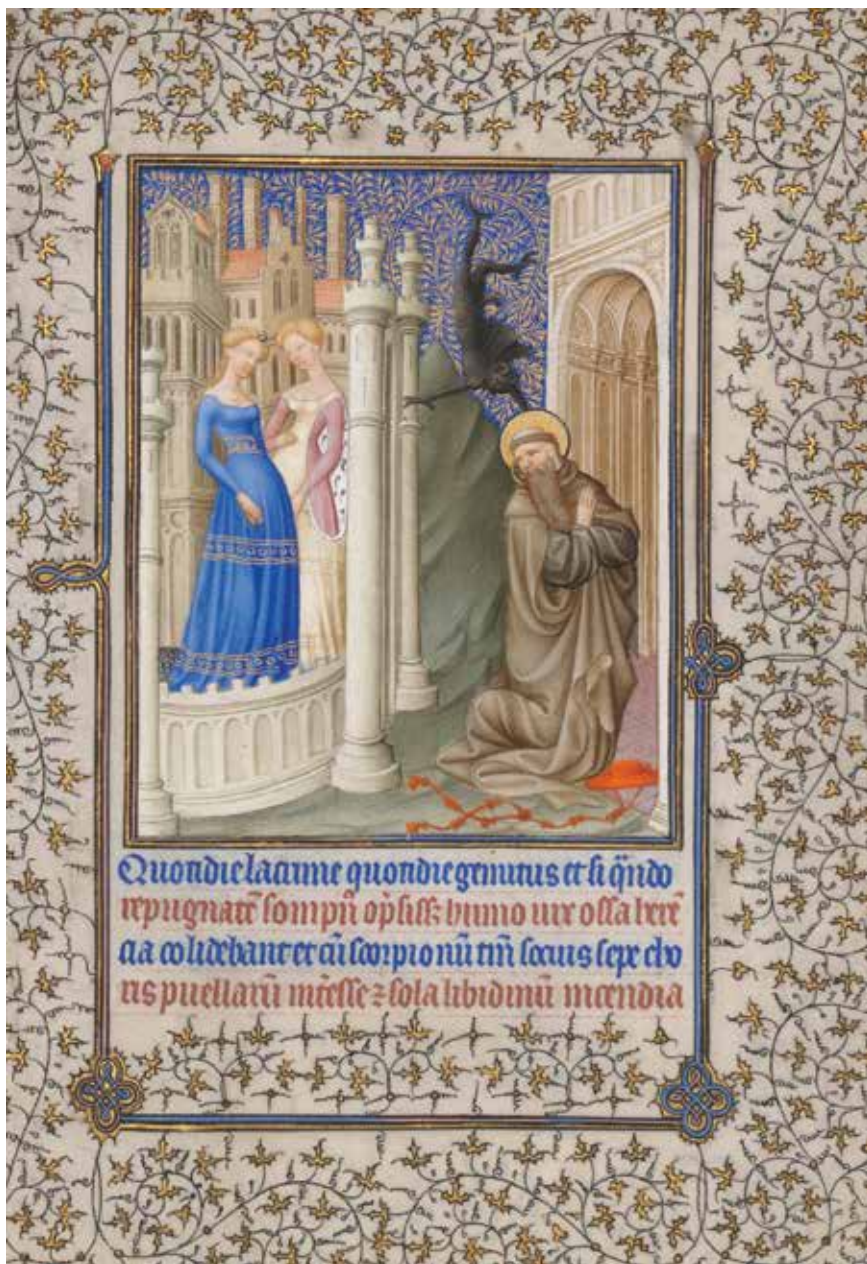 Quotidie lacrime quotidie gemitus et si q̄ndo
repugnatē sompn̄ op̄sissꝫ humo uix ossa herē
cia colidebant et cū scorpionū tm̄ socius sepe cho
ris puellarū int̄esse ⁊ sola libidinū incendia